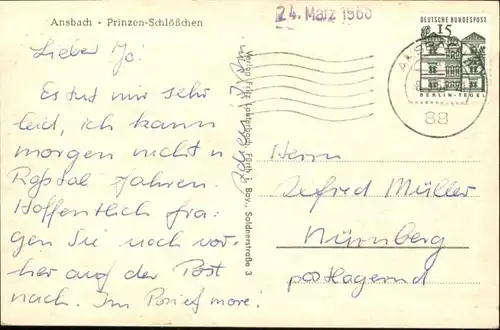 Ansbach - Prinzen-Schlößchen
24. März 1966
DEUTSCHE BUNDESPOST
15
BERLIN-TEGEL
88
Lieber Jo!
Es tut mir sehr
leid, ich kann
morgen nicht n.
Roßtal fahren.
Hoffentlich fra-
gen Sie noch vor-
her auf der Post
nach. Im Brief more!
Verlag Fritz Lauterbach, Fürth i. Bay., Soldnerstraße 3
Herrn
Müller
Nürnberg
postlagernd